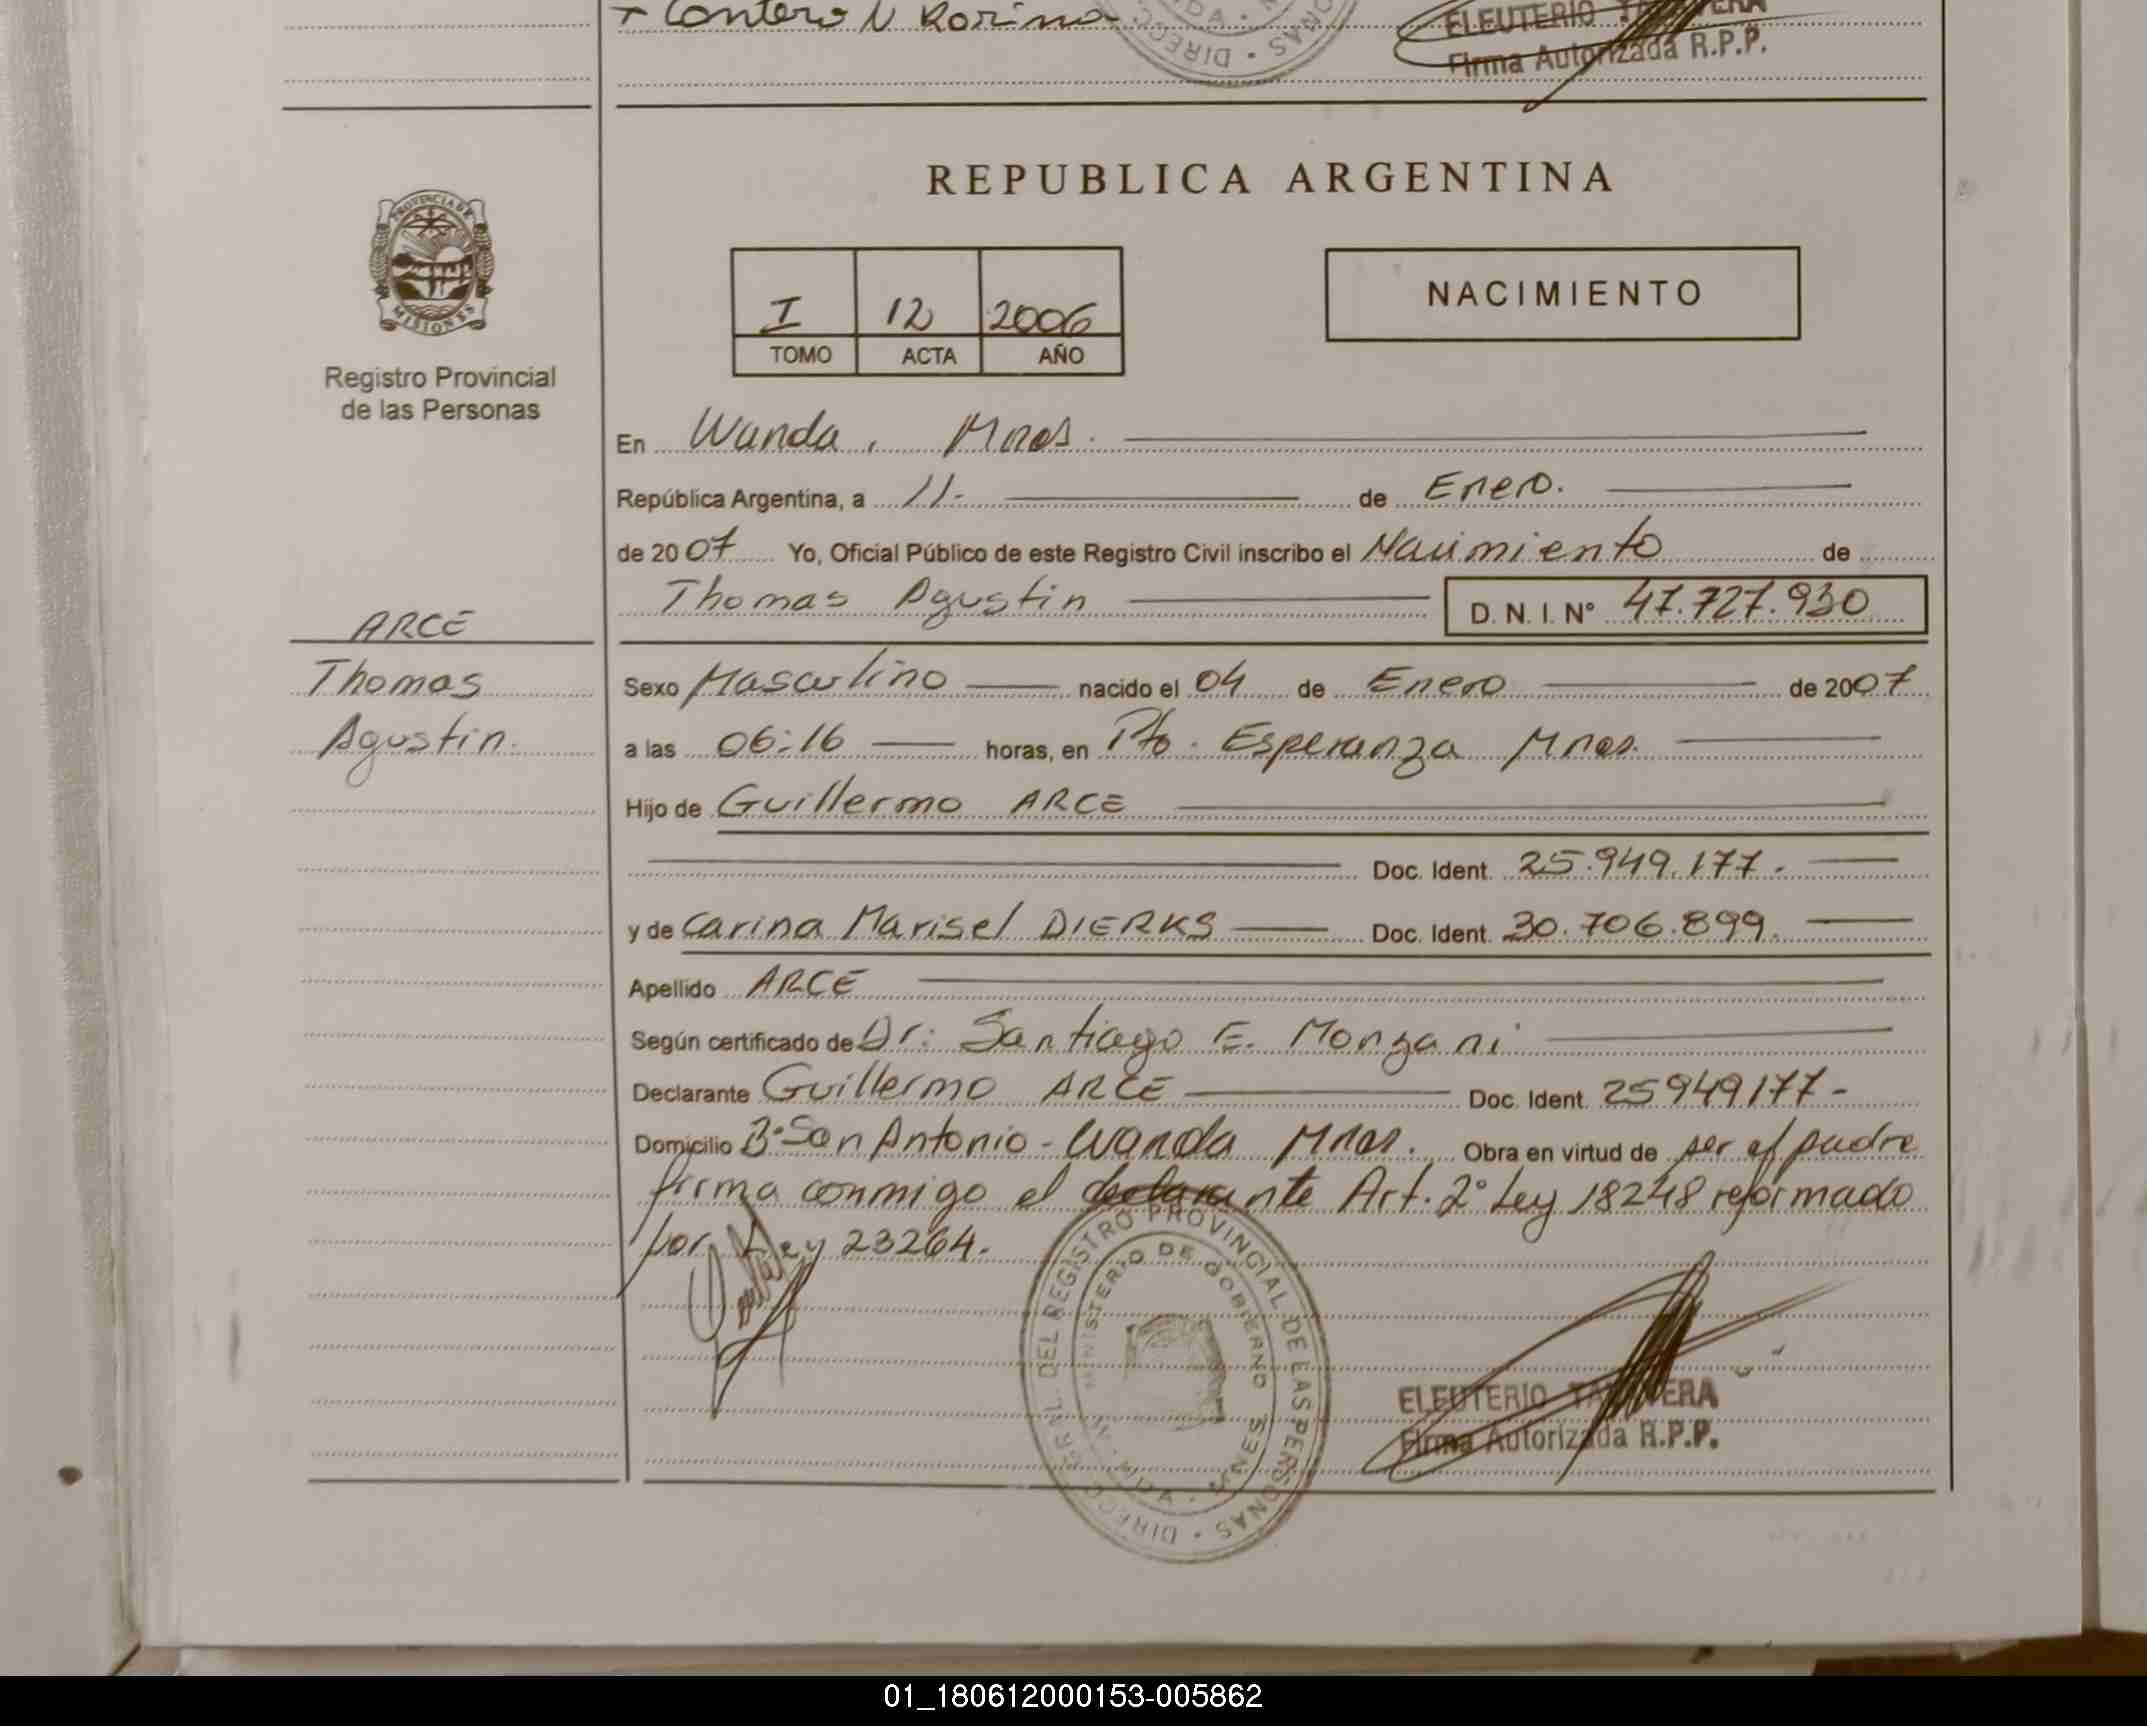 + Contero N Rorina
DIREC
ELEUTERIO TALAVERA
Firma Autorizada R.P.P.
REPUBLICA ARGENTINA
PROVINCIA DE
MISIONES
Registro Provincial
de las Personas
I 12 2006
TOMO ACTA AÑO
NACIMIENTO
En Wanda, Mnes.
República Argentina, a 11.- de Enero.
de 2007 Yo, Oficial Público de este Registro Civil inscribo el Nacimiento de
Thomas Agustin D. N. I. N° 47.727.930
ARCE
Thomas
Agustin.
Sexo Masculino nacido el 04 de Enero de 2007
a las 06:16 horas, en Pto. Esperanza Mnes.
Hijo de Guillermo ARCE
Doc. Ident. 25.949.177.-
y de Carina Marisel DIERKS Doc. Ident. 30.706.899.
Apellido ARCE
Según certificado de Dr: Santiago E. Monzani
Declarante Guillermo ARCE Doc. Ident. 25949177-
Domicilio B° San Antonio - Wanda Mnes. Obra en virtud de ser el padre
firma conmigo el declarante Art. 2° Ley 18248 reformado
por Ley 23264.
DIREC. GRAL. DEL REGISTRO PROVINCIAL DE LAS PERSONAS
MINISTERIO DE GOBIERNO
ELEUTERIO TALAVERA
Firma Autorizada R.P.P.
01_180612000153-005862